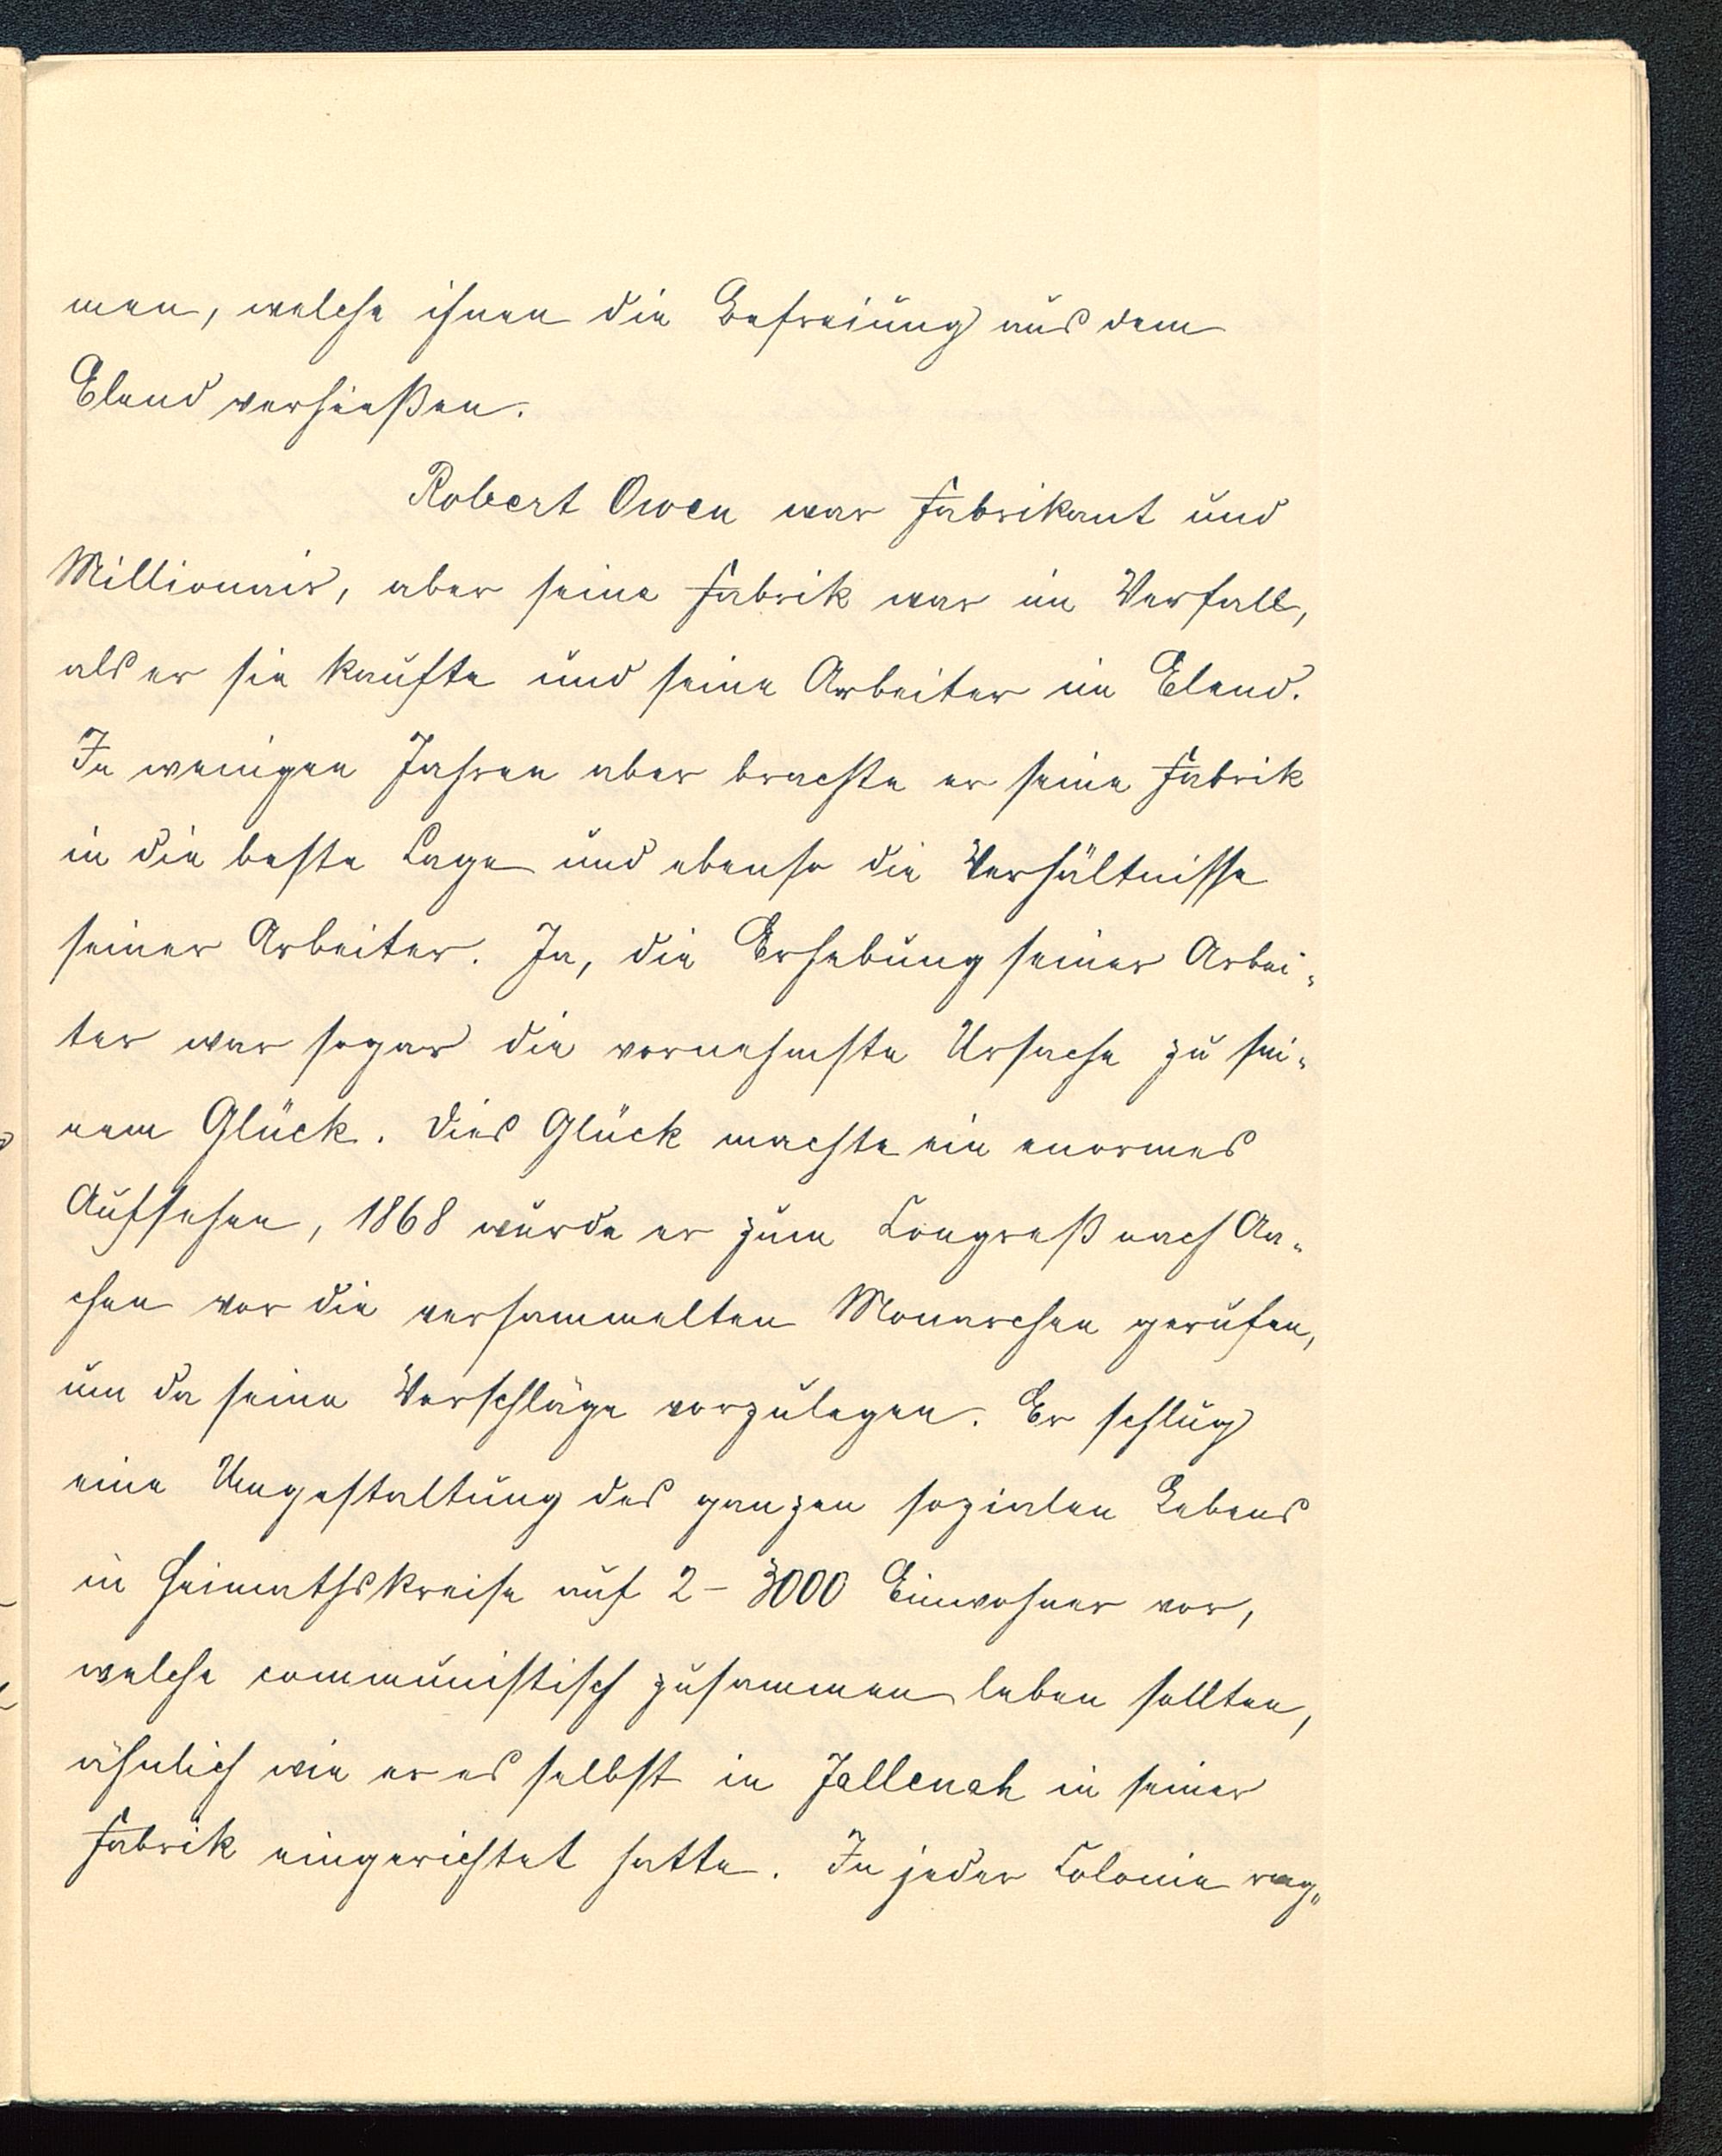 men, welche ihnen die Befreiung aus dem
Elend verhießen.
Robert Owen war Fabrikant und
Millionair, aber seine Fabrik war im Verfall,
als er sie kaufte und seine Arbeiter im Elend.
In wenigen Jahren aber brachte er seine Fabrik
in die beste Lage und ebenso die Verhältnisse
seiner Arbeiter. Ja, die Erhebung seiner Arbei-
ter war sogar die vornehmste Ursache zu sei-
nem Glück. Dies Glück machte ein enormes
Aufsehen, 1868 wurde er zum Congreß nach Aa-
chen vor die versammelten Monarchen gerufen,
um da seine Vorschläge vorzulegen. Er schlug
eine Umgestaltung des ganzen sozialen Lebens
in Heimathskreise auf 2–3000 Einwohner vor,
welche communistisch zusammen leben sollten,
ähnlich wie er es selbst in Jallenah in seiner
Fabrik eingerichtet hatte. In jeder Colonie